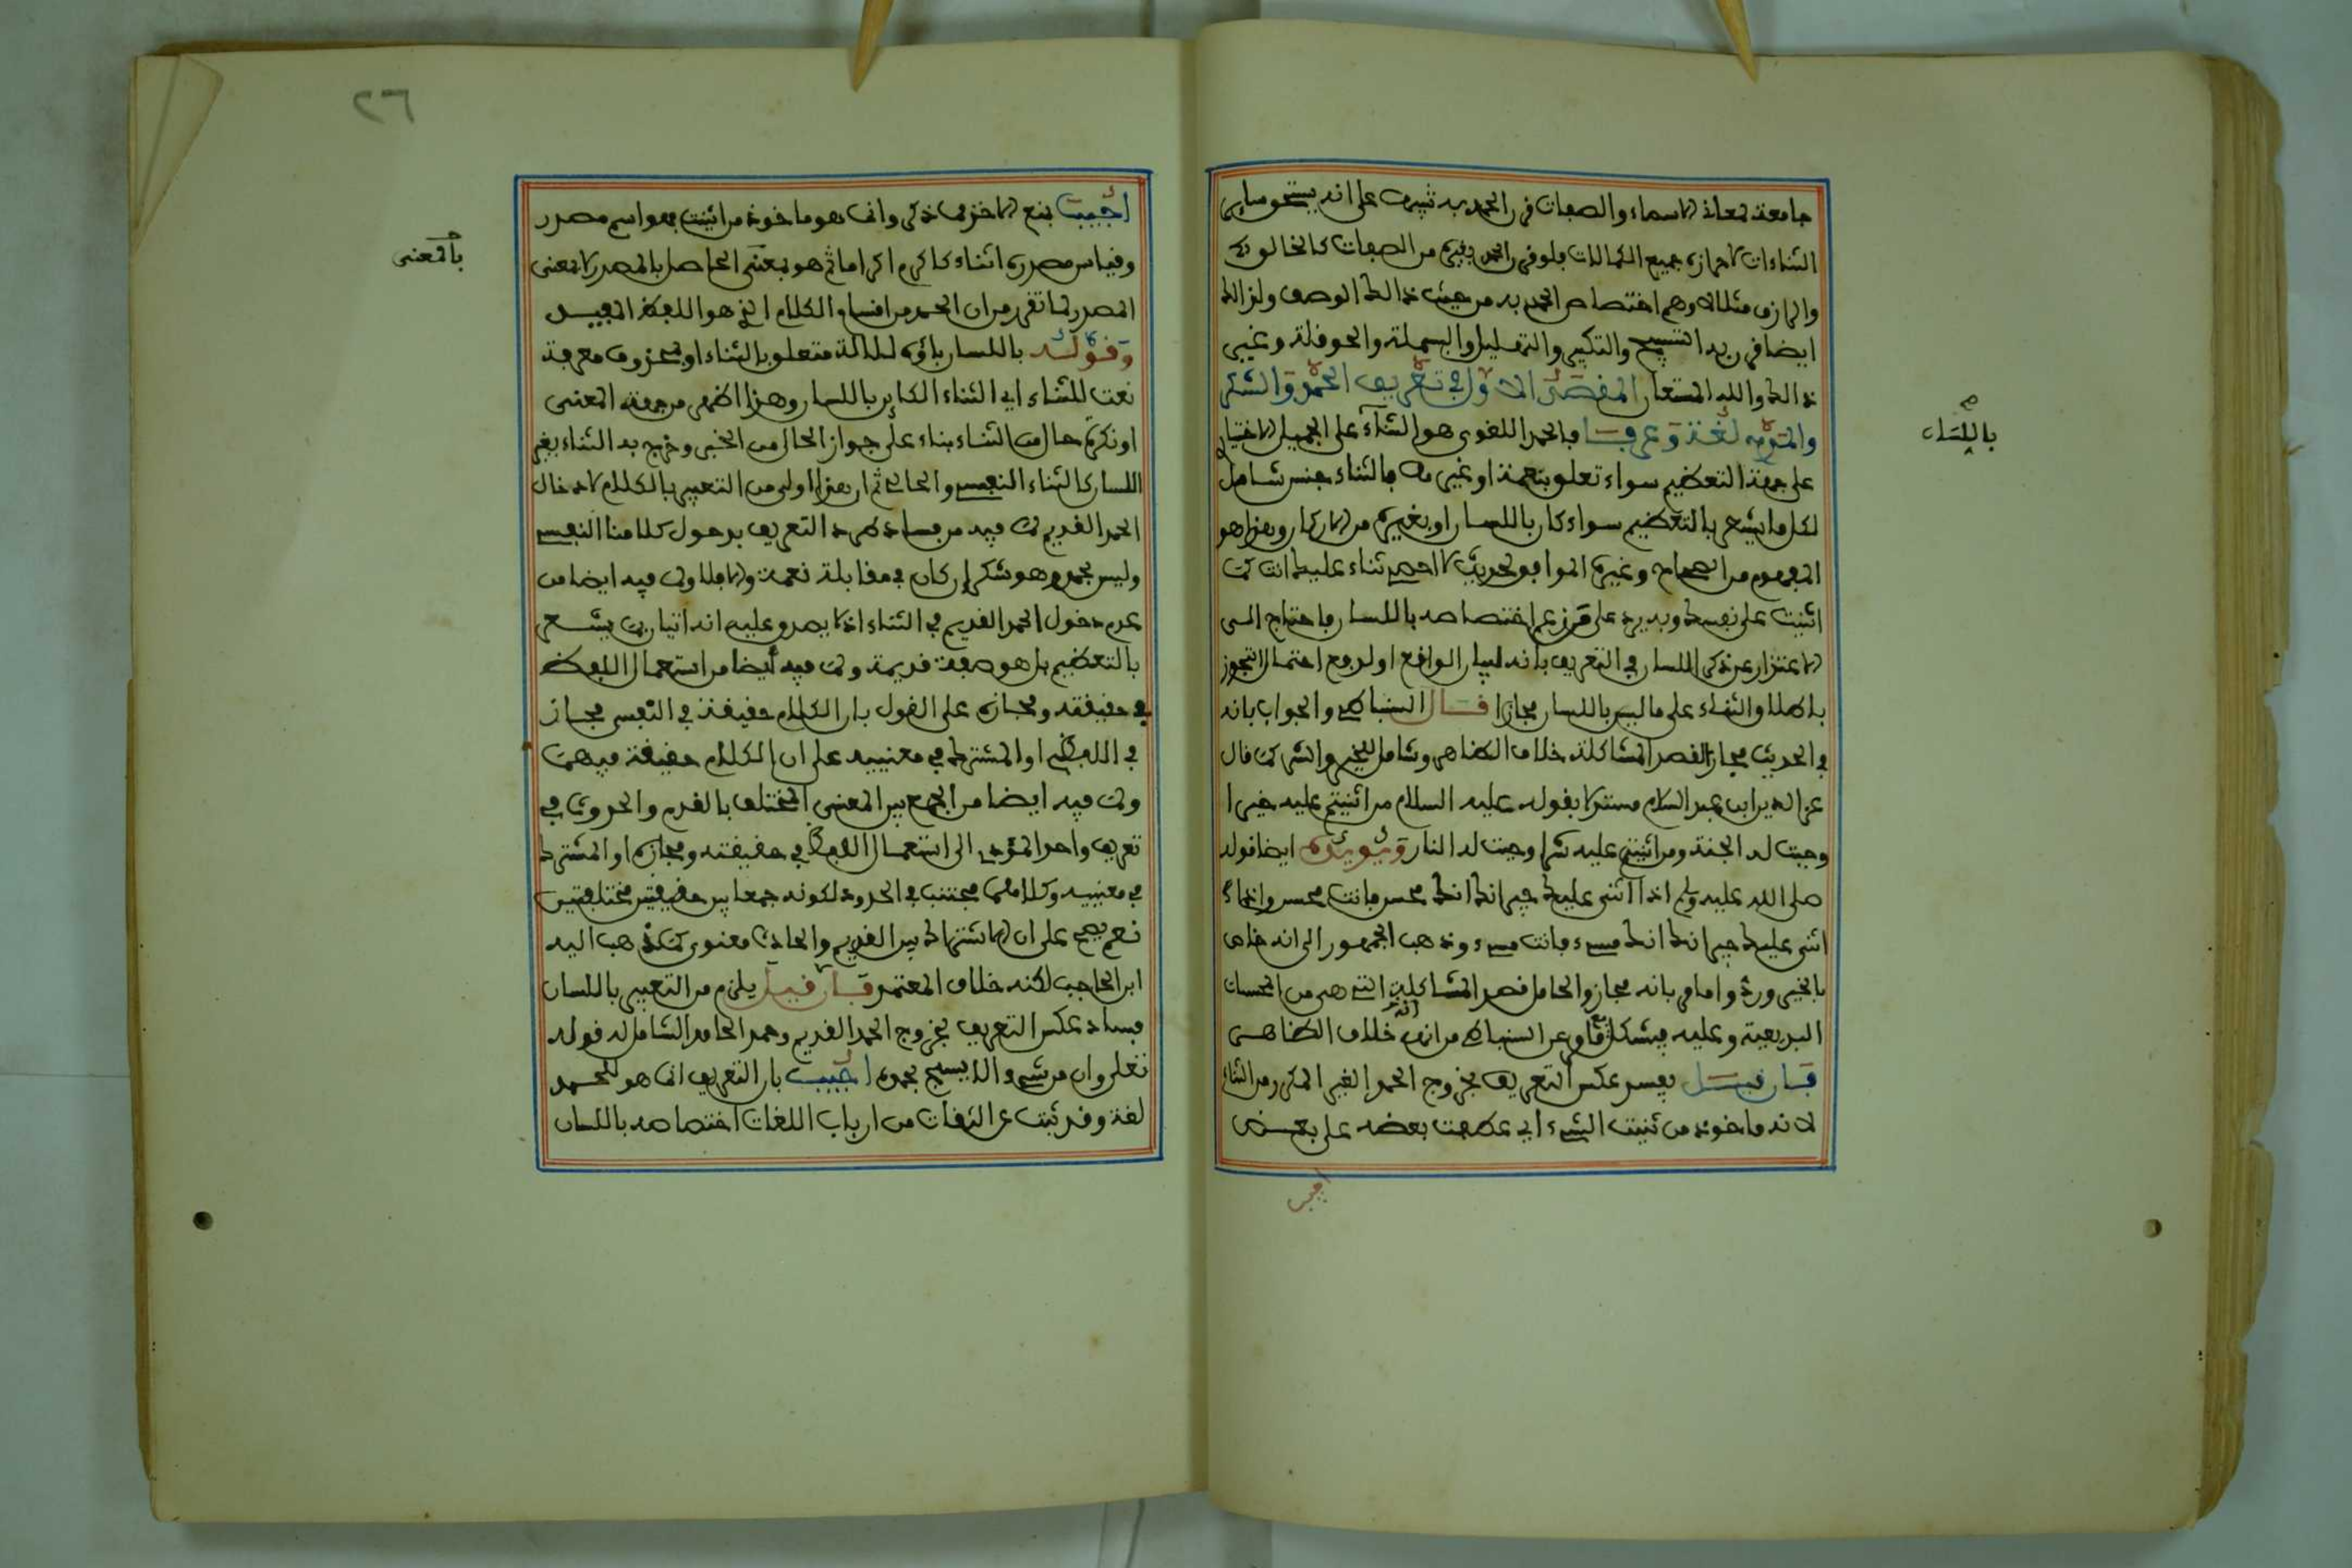 جامعة لمعاني الاسماء والصفات قرن الحمد به تنبيها على انه يستحق سائر
الثناءات لاحرازه جميع الكمالات فلو قرن الحمد بغيره من الصفات كالخالق
والرازق مثلا لاوهم اختصاص الحمد به من حيث ذالك الوصف ولذالك
ايضا قرن به التسبيح والتكبير والتهليل والبسملة والحوقلة وغير
ذالك والله المستعان المقصد الاول في تعريف الحمد والشكر
والمدح لغة وعرفا فالحمد اللغوي هو الثناء على الجميل الاختياري
على جهة التعظيم سواء تعلق بنعمة او غيرها فالثناء جنس شامل
لكل ما يشعر بالتعظيم سواء كان باللسان او بغيره من الاركان وهذا هو
المفهوم من الصحاح وغيره الموافق لحديث لا احصي ثناء عليك انت كما
اثنيت على نفسك وبه يرد على من زعم اختصاصه باللسان فاحتاج الى
الاعتذار عن ذكر اللسان في التعريف بانه لبيان الواقع او لدفع احتمال التجوز
باطلاق الثناء على ما ليس باللسان مجازا قال السنباطي والجواب بانه
في الحديث مجاز لقصد المشاكلة خلاف الظاهر وشامل للخير والشر كما قال
عز الدين ابن عبد السلام مستدلا بقوله عليه السلام من اثنيتم عليه خيرا
وجبت له الجنة ومن اثنيتم عليه شرا وجبت له النار ويؤيده ايضا قوله
صلى الله عليه وسلم اذا اثنى عليك جيرانك انك محسن فانت محسن واذا
اثنى عليك جيرانك انك مسيء فانت مسيء وذهب الجمهور الى انه خاص
بالخير ورد وامامر بانه مجاز والحامل قصد المشاكلة التي هي من المحسنات
البديعية وعليه فيشكل ما مر عن السنباطي من انه خلاف الظاهر
فان قيل يفسد عكس التعريف بخروج الحمد الغير المكرر من الثناء
لانه ماخوذ من ثنيت الشيء اي عطفت بعضه على بعض
اجيب
باللسان
٢٦
اجيب بمنع الاخذ مما ذكر وانما هو ماخوذ من اثنيت فهو اسم مصدر
وقياس مصدره اثناء كاكرم اكراما ثم هو بمعنى الحاصل بالمصدر لا بمعنى
المصدر لما تقرر من ان الحمد من اقسام الكلام الذي هو اللفظ المفيد
وقوله باللسان باؤه للالة متعلق بالثناء او بمحذوف معرفة
نعت للثناء اي الثناء الكائن باللسان وهذا اظهر من جهة المعنى
او نكرة حال من الثناء بناء على جواز الحال من الخبر وخرج به الثناء بغير
اللسان كالثناء النفسي والحالي ثم ان هذا اولى من التعبير بالكلام لادخال
الحمد القديم لما فيه من فساد طرد التعريف بدخول كلامنا النفسي
وليس بحمد وهو شكر ان كان في مقابلة نعمة والا فلا ولما فيه ايضا من
عدم دخول الحمد القديم في الثناء اذ لا يصدق عليه انه اتيان بما يشعر
بالتعظيم بل هو صفة قديمة ولما فيه ايضا من استعمال اللفظ
في حقيقته ومجازه على القول بان الكلام حقيقة في النفسي مجاز
في اللفظي او المشترك في معنييه على ان الكلام حقيقة فيهما
ولما فيه ايضا من الجمع بين المعنى المختلف بالقدم والحدوث في
تعريف واحد المؤدي الى استعمال اللفظ في حقيقته ومجازه او المشترك
في معنييه وكلاهما مجتنب في الحدود لكونه جمعا بين حقيقتين مختلفتين
نعم يصح على ان الاشتراك بين القديم والحادث معنوي كما ذهب اليه
ابن الحاجب لكنه خلاف المعتمد فان قيل يلزم من التعبير باللسان
فساد عكس التعريف بخروج الحمد القديم وحمد الجامد الشامل له قوله
تعلى وان من شيء الا يسبح بحمده اجيب بان التعريف انما هو للحمد
لغة وقد ثبت عن الثقات من ارباب اللغات اختصاصه باللسان
بالمعنى